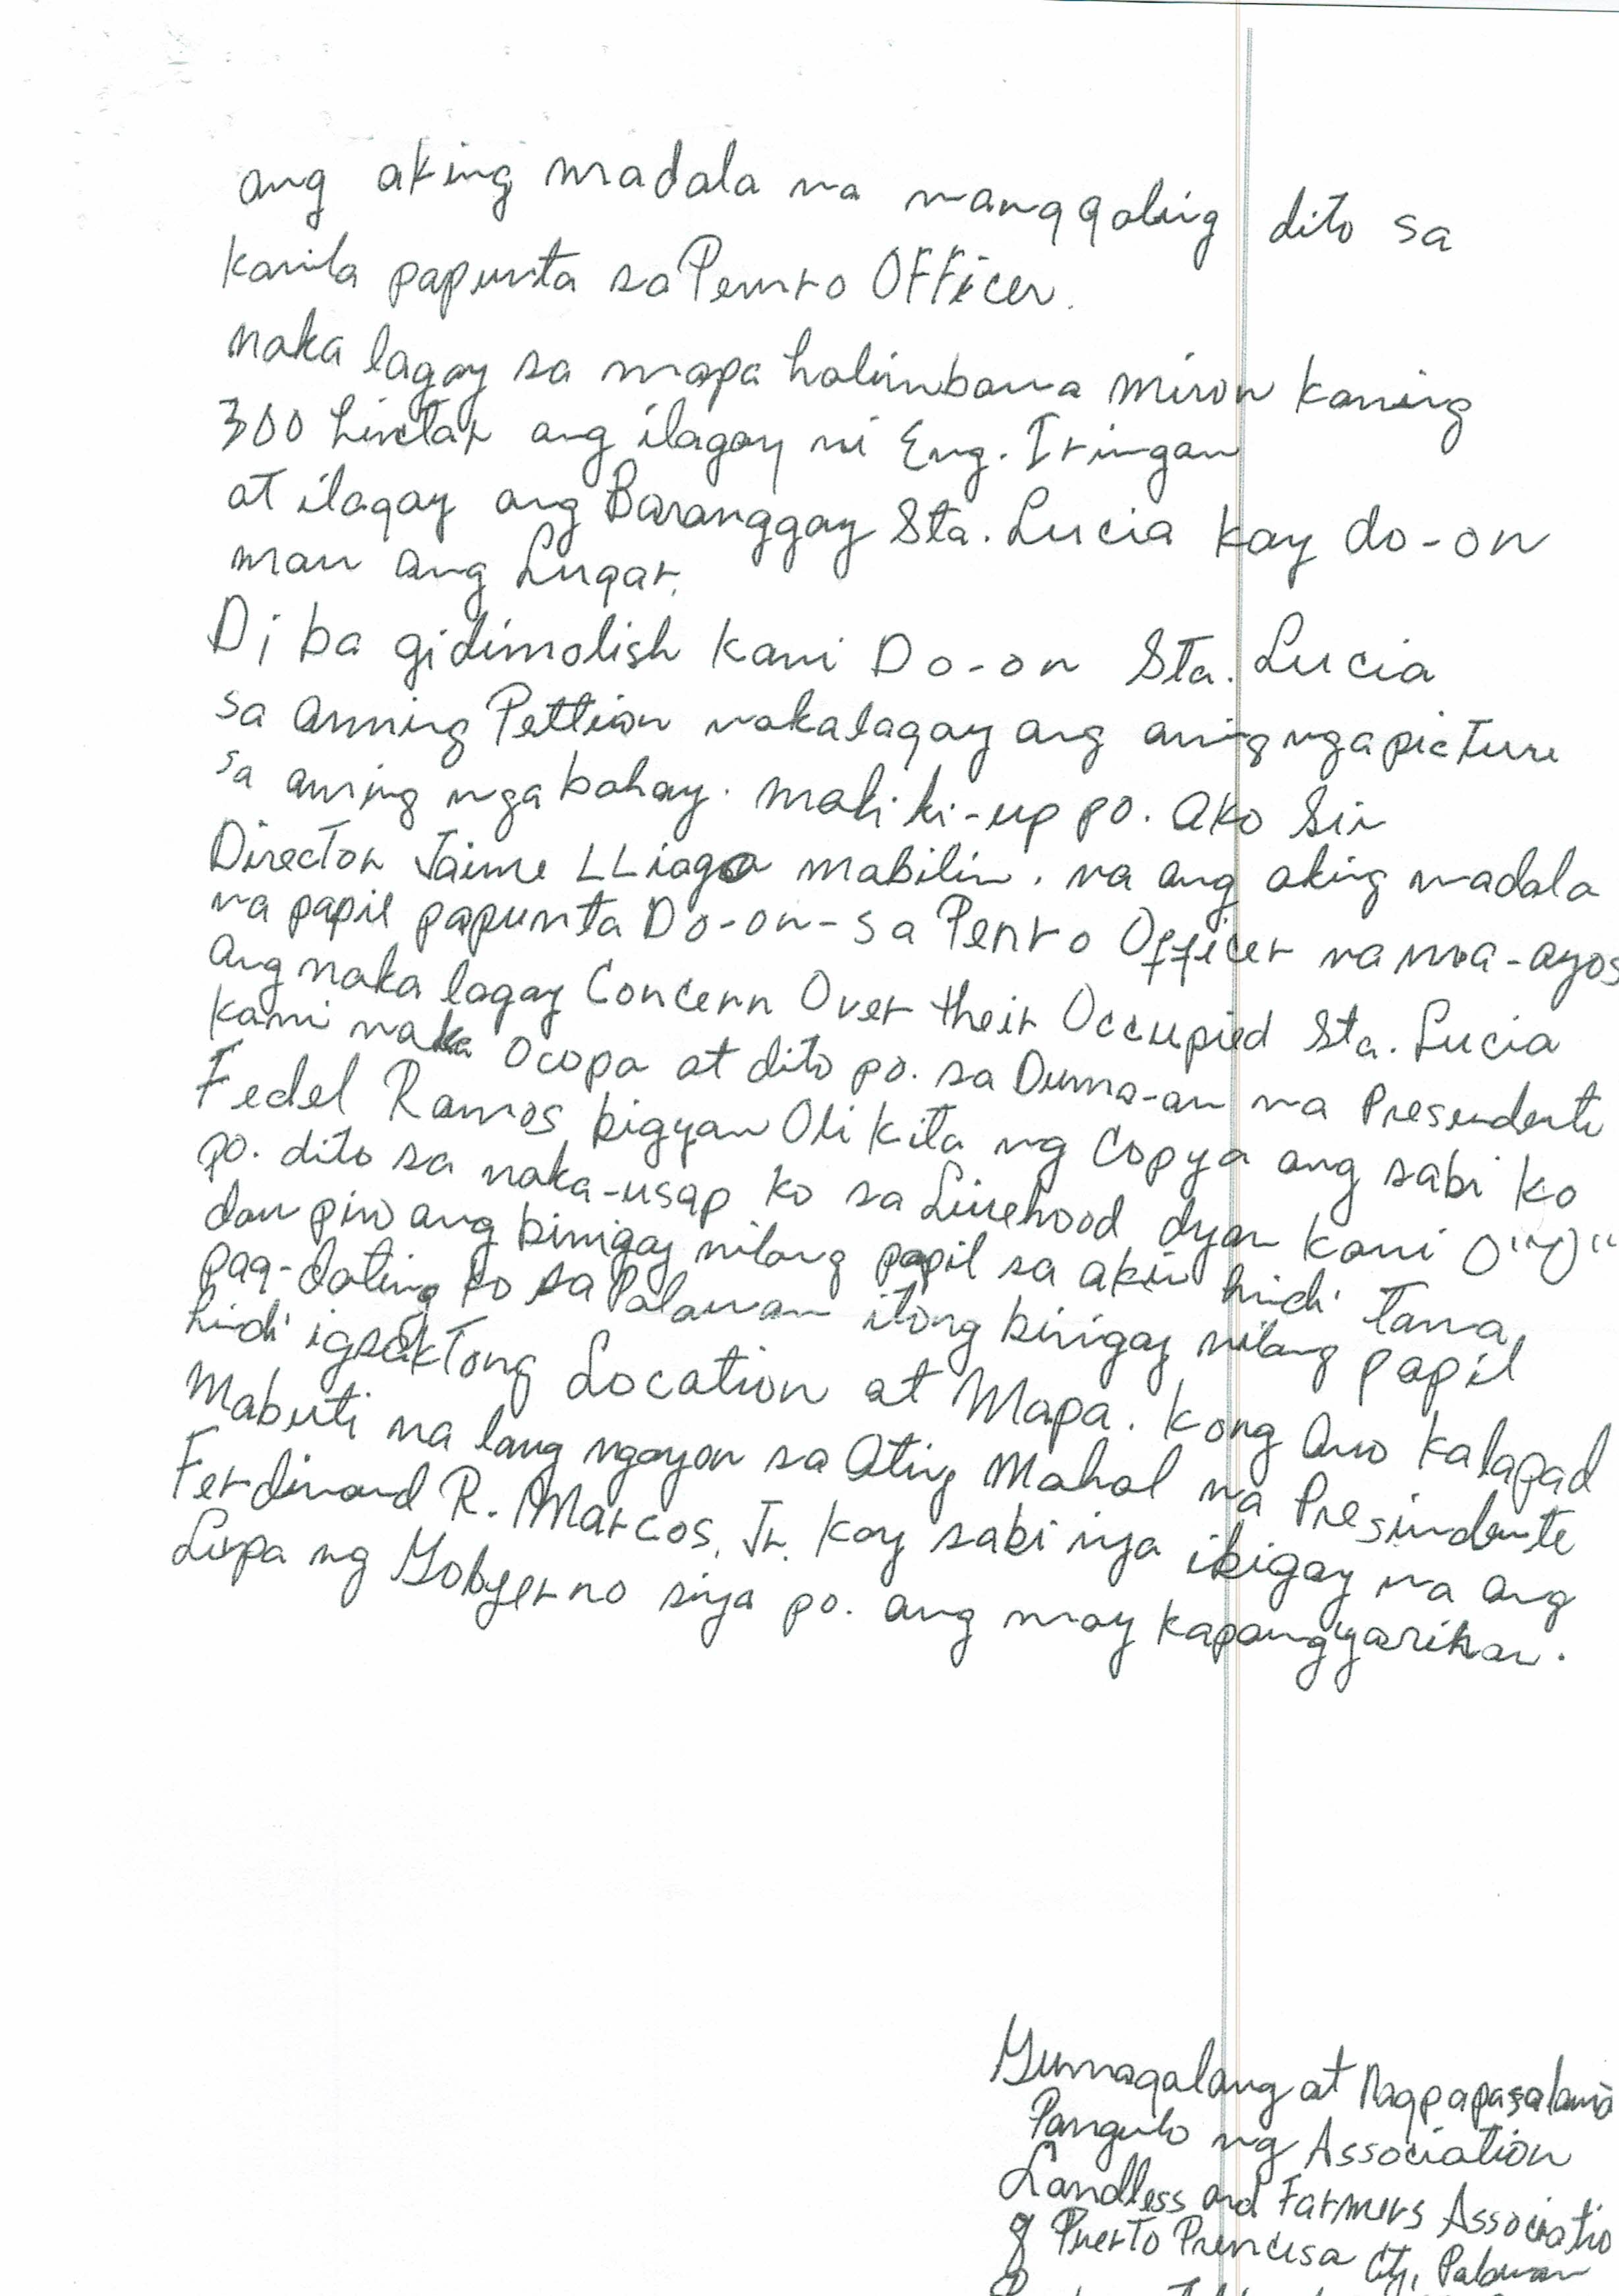 ang aking madala na manggaling dito sa
kanila papunta sa Penro OFFicer.
Naka lagay sa mapa halimbawa miron kaning
300 hinctar ang ilagay ni Eng. Iringan
at ilagay ang Baranggay Sta. Lucia kay do-on
man ang Lugar.
Di ba gidimolish kami Do-on Sta. Lucia
sa aming Pettion nakalagay ang aming nga picture
sa aming nga bahay. maki ki-up po. ako Sir
Director Jaime LLiaga mabilin. na ang aking madala
na papil papunta Do-on-sa Penro Officer na ma-ayos
ang naka lagay Concern Over their Occupied Sta. Lucia
kami naka ocopa at dito po. sa Duma-an na Presendente
Fedel Ramos bigyan Oli kita ng Copya ang sabi ko
po. dito sa naka-usap ko sa Livehood dyan kami O"O"
dan pino ang binigay nilang papil sa akin hindi tama,
pag-dating ko sa Palawan itong binigay nilang papil
hindi igsaktong Location at Mapa. kong ano kalapad
Mabuti na lang ngayon sa Ating Mahal na Presindente
Ferdinand R. Marcos, Jr. kay sabi niya ibigay na ang
Lupa ng Gobyerno siya po. ang may kapangyarihan.
Gumagalang at Nagpapasalama
Pangulo ng Association
Landless and Farmers Associatio
of Puerto Princesa City, Palawan